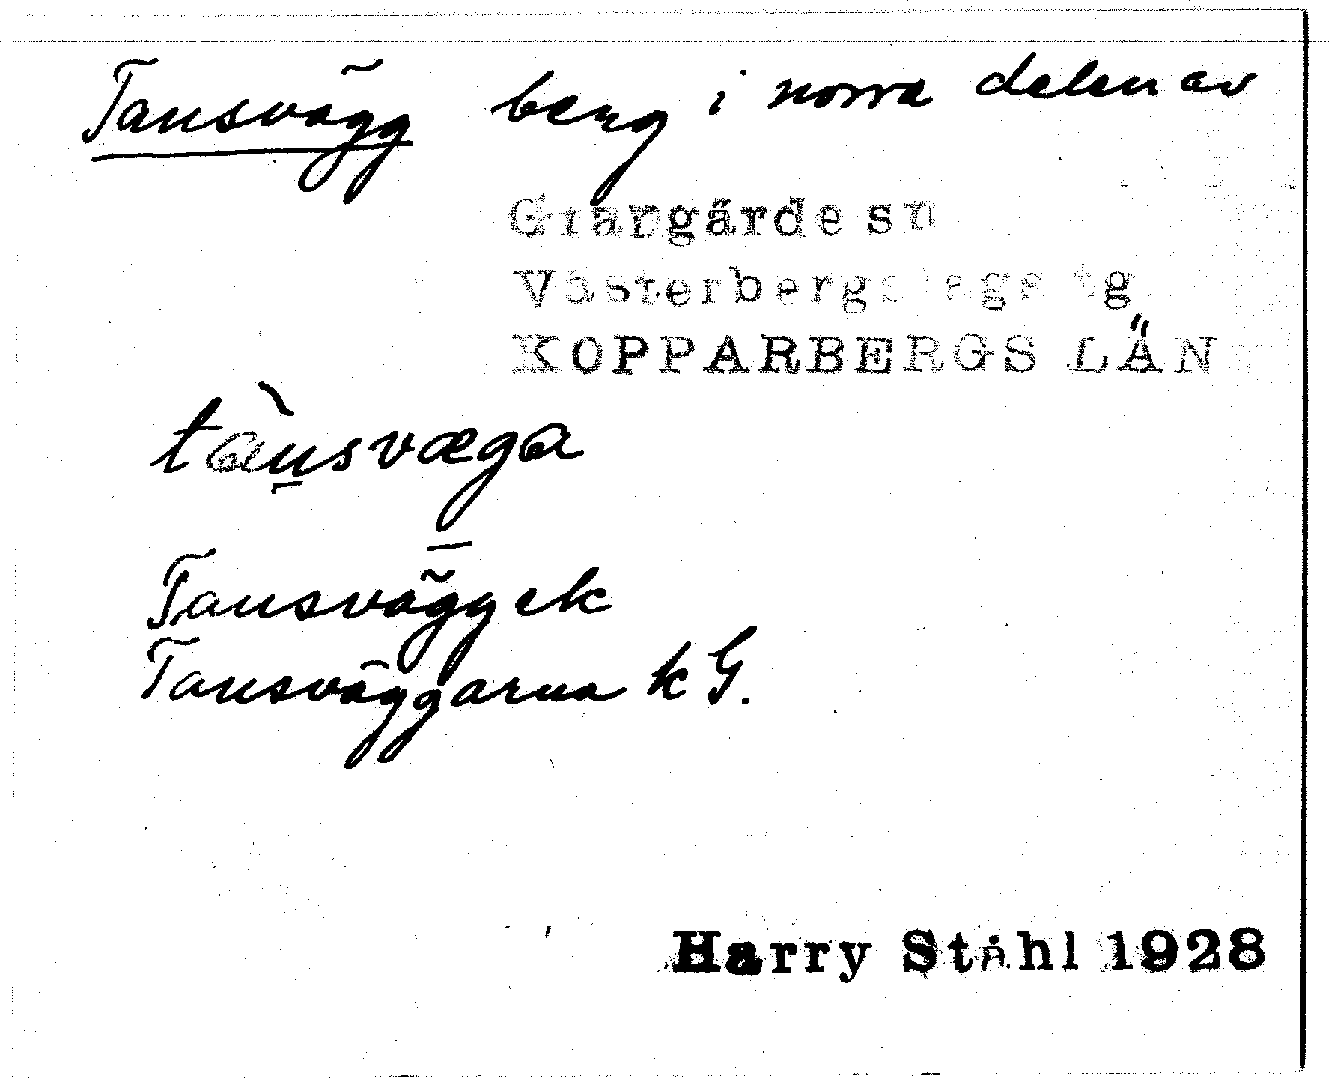 Tansvägg berg i norra delen av
Grangärde sn
Västerbergslags tg
KOPPARBERGS LÄN
tànsvæga
Tansvägg ek
Tansväggarna k G.
Harry Ståhl 1928